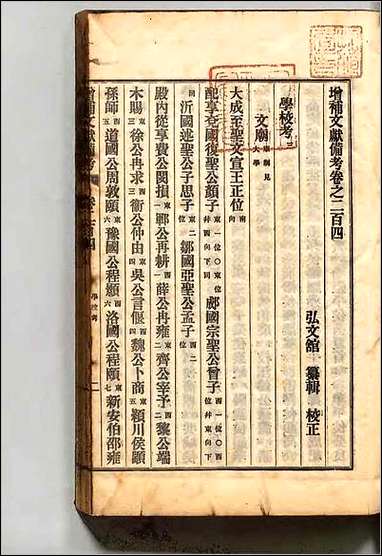 增補文獻備考卷之二百四
弘文舘 纂輯 校正
學校考三
文廟 廟制見大學
大成至聖文宣王正位 南向
配享兗國復聖公顏子 東位一〇西向下同 郕國宗聖公曾子 西位一〇東向下
同 沂國述聖公子思子 東位二 鄒國亞聖公孟子 西位二
殿內從享費公閔損 東一 鄆公冉耕 西一 薛公冉雍 東二 齊公宰予 西二 黎公端
木賜 東三 徐公冉求 西三 衞公仲由 東四 吳公言偃 西四 魏公卜商 東五 潁川侯顓
孫師 西五 道國公周敦頤 東六 豫國公程顥 西六 洛國公程頤 東七 新安伯邵雍
增補文獻備考 卷二百四 學校考 一